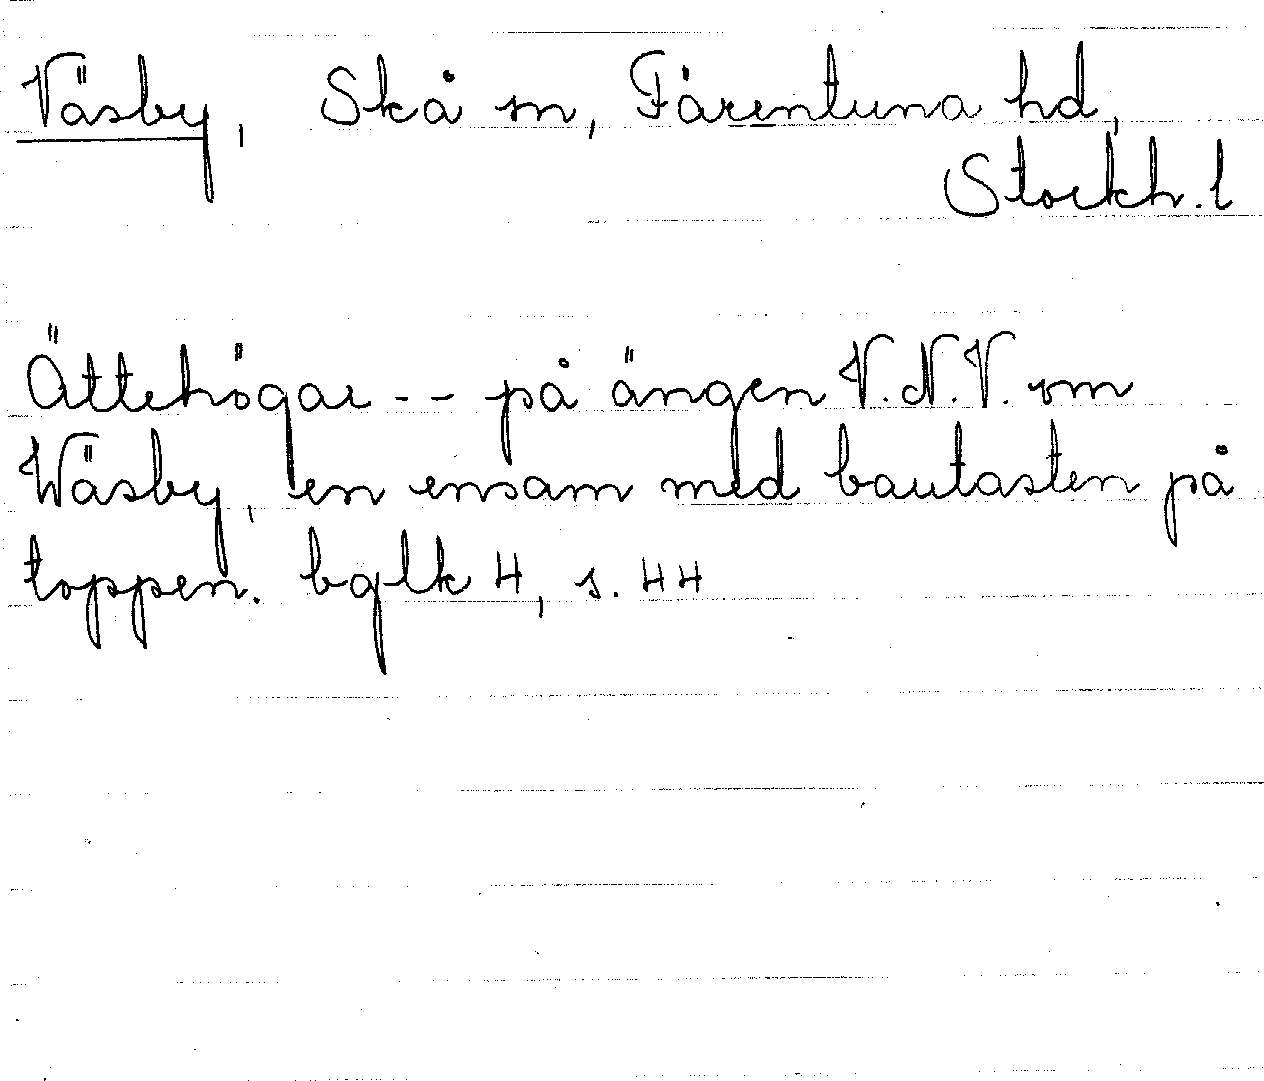 Väsby, Skå sn, Färentuna hd,
Stockh. l
Ättehögar -- på ängen V.N.V. om
Wäsby, en ensam med bautasten på
toppen. bglk 4, s. 44